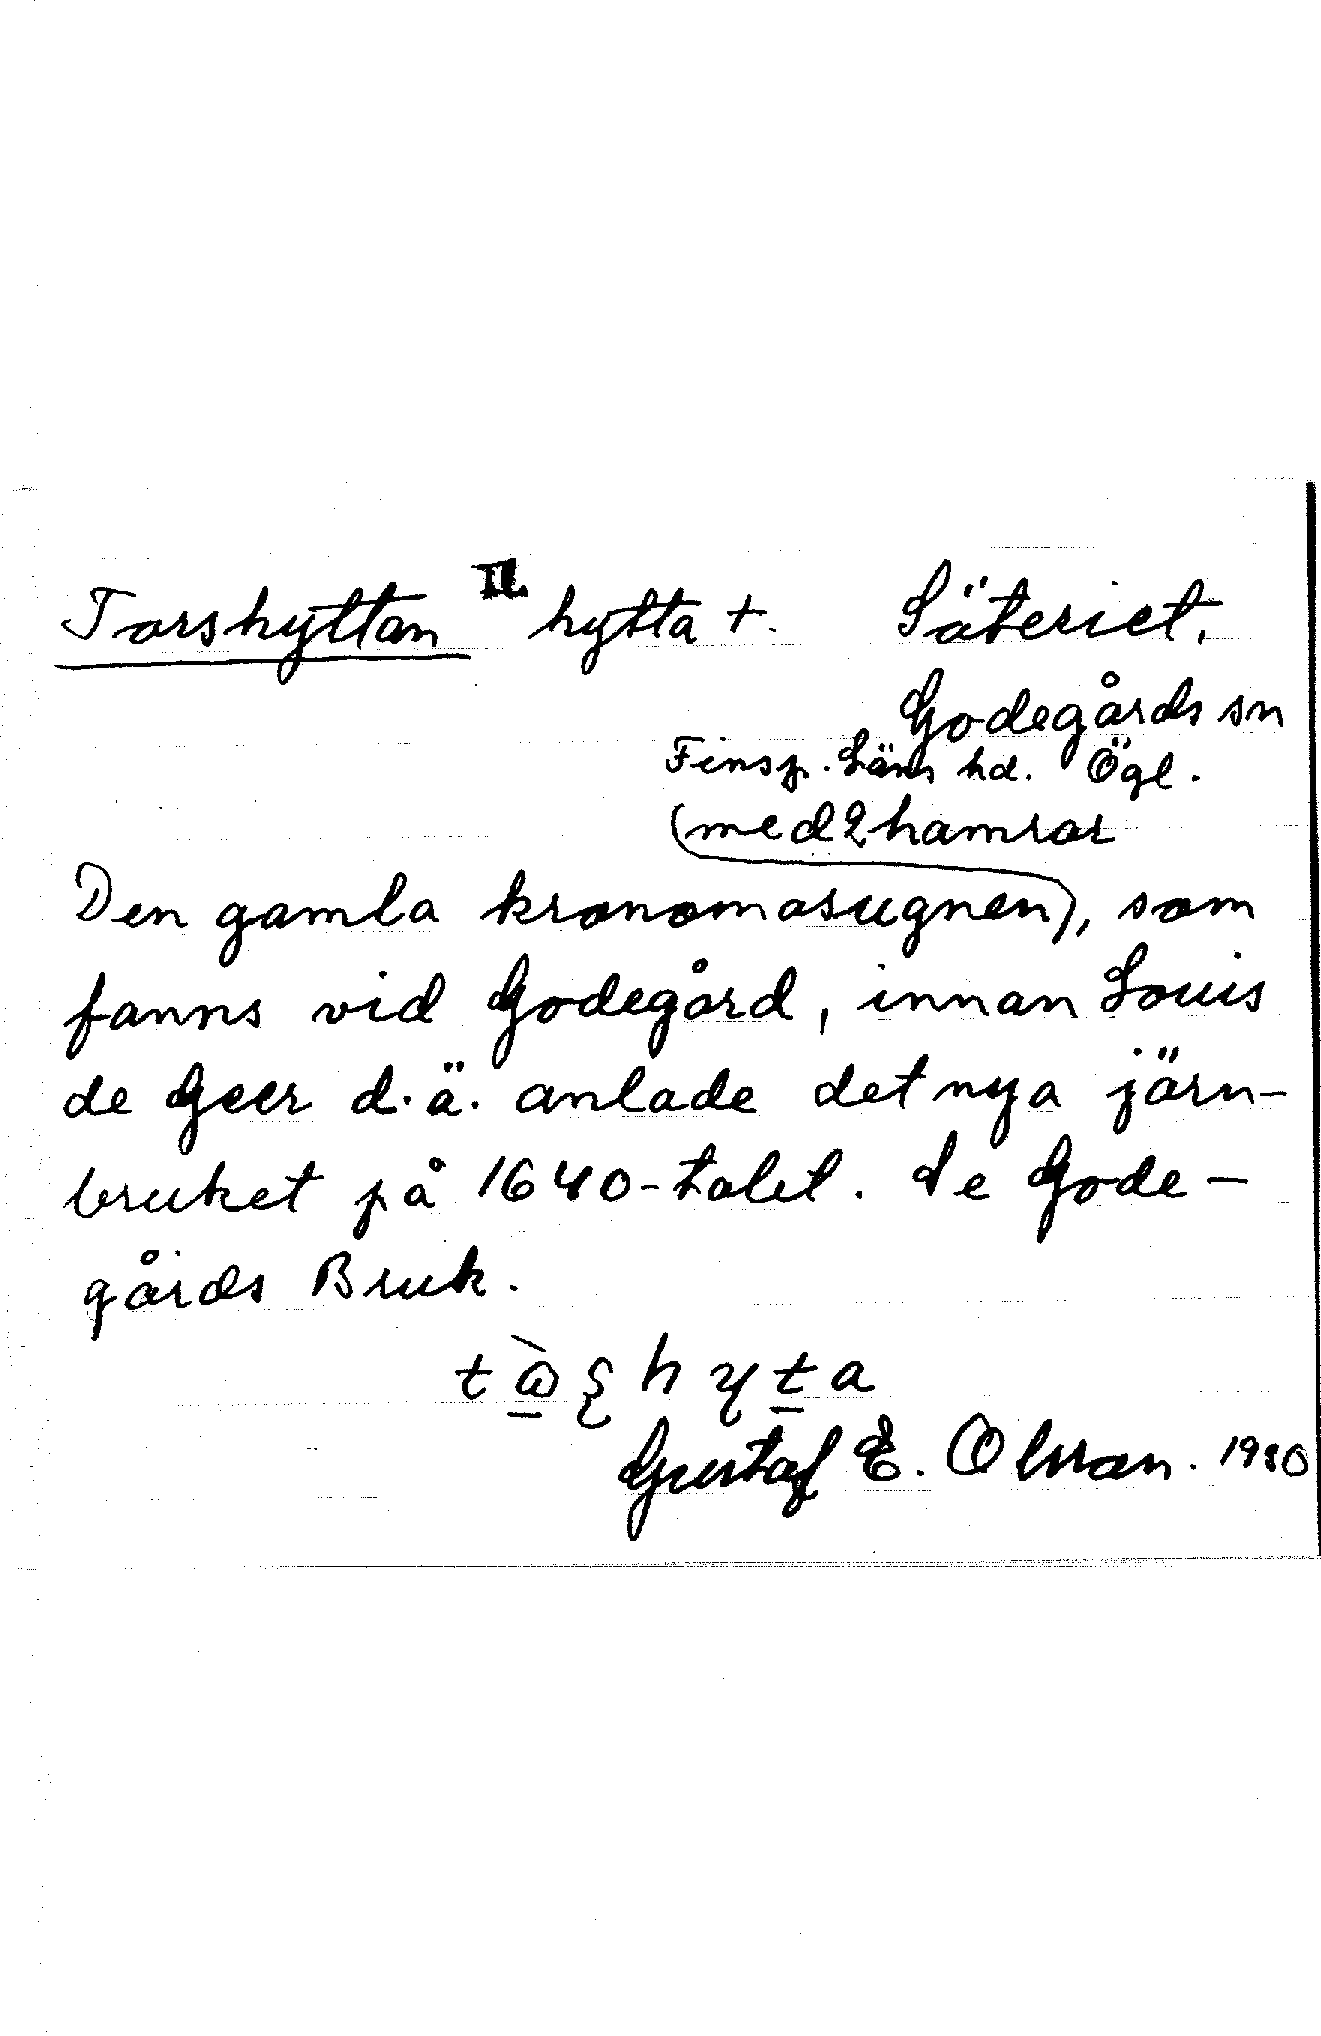 Torshyttan II. hytta +. Säteriet.
Godegårds sn
Finsp. Läns hd. Ögl.
(med 2 hamrar
Den gamla kronomasugnen), som
fanns vid Godegård, innan Louis
de Geer d.ä. anlade det nya järn-
bruket på 1640-talet. Se Gode-
gårds Bruk.
Gustaf E. Olsson. 1980